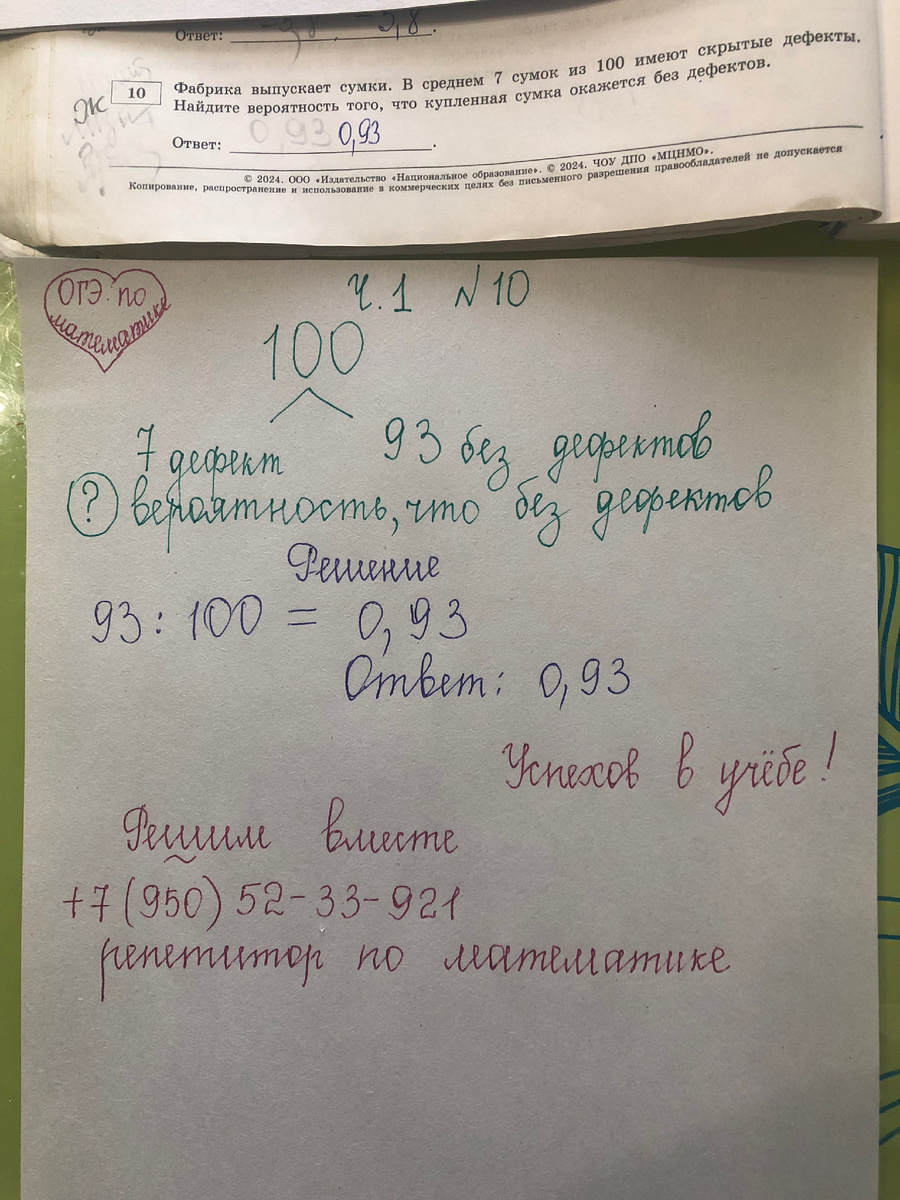 Ответ: -3,8 .
10 Фабрика выпускает сумки. В среднем 7 сумок из 100 имеют скрытые дефекты.
Найдите вероятность того, что купленная сумка окажется без дефектов.
Ответ: 0,93 0,93 .
© 2024. ООО «Издательство «Национальное образование». © 2024. ЧОУ ДПО «МЦНМО».
Копирование, распространение и использование в коммерческих целях без письменного разрешения правообладателей не допускается
ОГЭ по
математике
Ч.1 №10
100
7 дефект 93 без дефектов
? вероятность, что без дефектов
Решение
93 : 100 = 0,93
Ответ: 0,93
Успехов в учёбе!
Решим вместе
+7(950)52-33-921
репетитор по математике